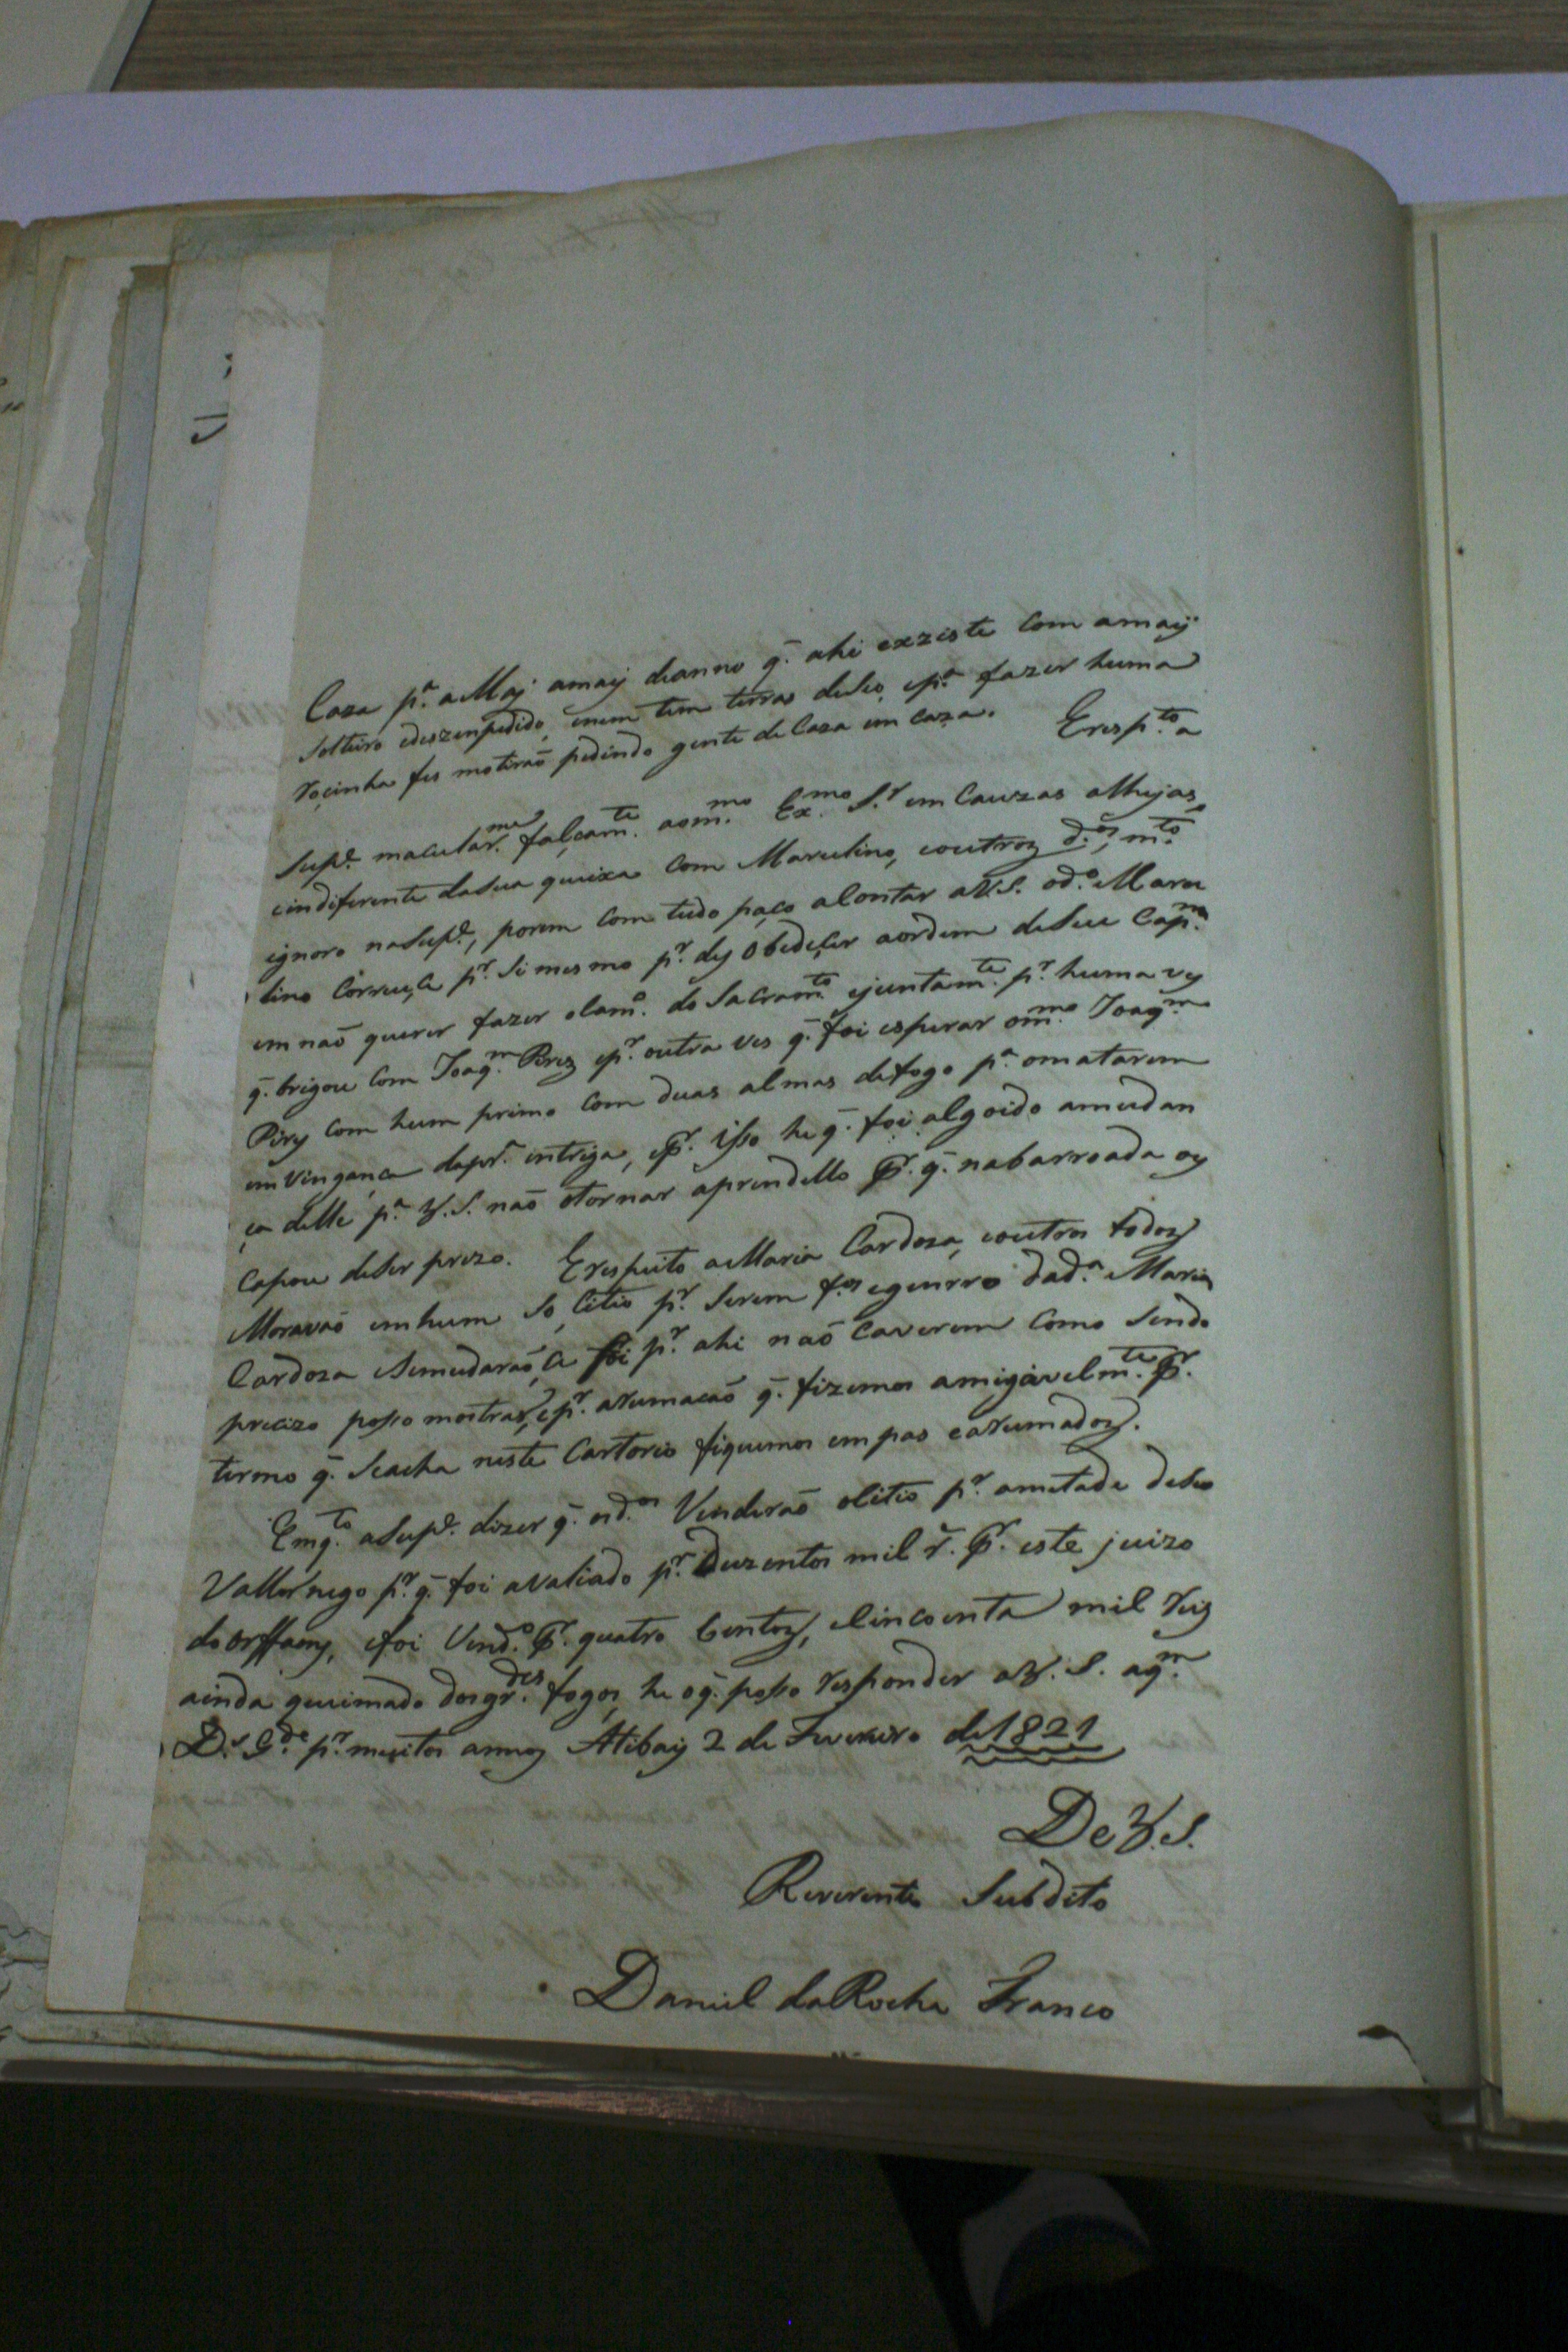 Caza p.ª a Maj amaij deanno q̃. ahi exziste Com amaij
Solteiro edezenpedido, enem tem terras deseo, ep.ª fazer huma
roçinha fes motirão pedindo gente de Caza em Caza. Eresp.to a
Sup.e macular.me falçam.te aom.mo Ex.mo S.r em Cauzas alhejas,
eindiferente dasua queixa Com Marcelino, eoutroz d.os, m.to
ignoro naSup.e, porem Com tudo paço alontar aV.S. od.o Marce
lino Correu, Ce p.r Si mesmo p.r dez Obedeçer aordem deSeu Cap.m
em naõ querer fazer olam.o do Sacram.to ejuntam.te p.r huma vez
q̃. brigou Com Joaq.m Pirez ep.r outra ves q̃. foi esperar om.mo Joaq.m
Pirz Com hum primo Com duas almas defogo p.ª omatarem
em Vingança dapr.ª intriga, ep.r isso he q̃. foi algoido amudan
ça delle p.ª V.S. naõ otornar aprendello p.r q̃. nabarroada es
Capou deser prezo. Erespeito aMaria Cardoza, eoutros todoz
Moravaõ emhum So Citio p.r Serem f.os egenrro dad.ª Maria
Cardoza eSemudaraõ, Ce foi p.r ahi naõ Caverem Como Sendo
precizo posso mostrar, ep.r arumacaõ q̃. fizemos amigavelm.te p.r
termo q̃. Seacha neste Cartorio fiquemos em pas earumadoz.
Emq.to aSup.e dizer q̃. od.os Venderaõ oCitio p.r ametade deseo
Vallor nego p.r q̃. foi avaliado p.r Duzentos mil r.s p.r este juizo
do orffaons, efoi Vend.o p.r quatro Centoz, eCincoenta mil reiz
ainda queimado dosgr.des fogos, he oq̃. posso responder aV.S. aq.m
D.s G.de p.r muitos annoz Atibaij 2 de Fevereiro de 1821
De V.S.
Reverente Subdito
Daniel daRocha Franco